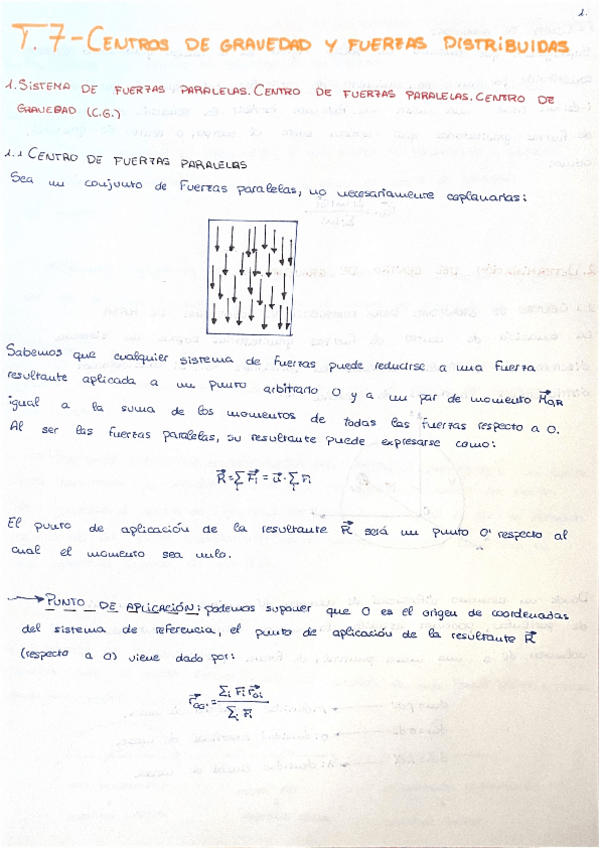 1.
T.7-CENTROS DE GRAVEDAD Y FUERZAS DISTRIBUIDAS
1.SISTEMA DE FUERZAS PARALELAS.CENTRO DE FUERZAS PARALELAS.CENTRO DE
GRAVEDAD (C.G.)
1.1 CENTRO DE FUERZAS PARALELAS
Sea un conjunto de Fuerzas paralelas, no necesariamente coplanarias:
Sabemos que cualquier sistema de fuerzas puede reducirse a una Fuerza
resultante aplicada a un punto arbitrario O y a un par de momento M⃗OR
igual a la suma de los momentos de todas las fuerzas respecto a O.
Al ser las fuerzas paralelas, su resultante puede expresarse como:
R⃗=∑i F⃗i = u⃗·∑i Fi
El punto de aplicación de la resultante R⃗ será un punto O' respecto al
cual el momento sea nulo.
→PUNTO DE APLICACIÓN: podemos suponer que O es el origen de coordenadas
del sistema de referencia, el punto de aplicación de la resultante R⃗
(respecto a O) viene dado por:
r⃗OG' = ∑i Fi r⃗Oi / ∑i Fi